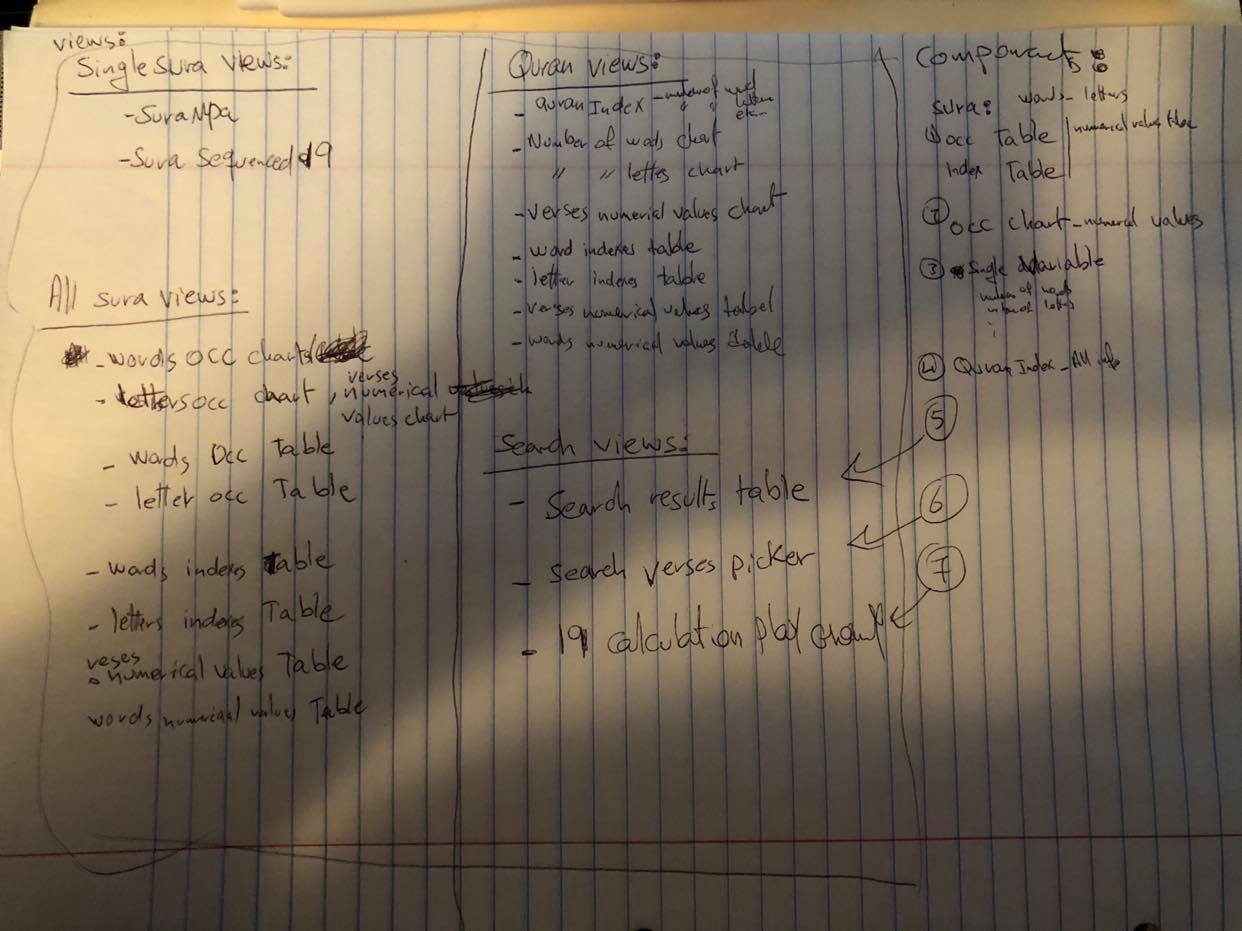 views:
Single Sura Views:
- Sura Mpa
- Sura Sequenced 19
All sura views:
- words occ charts
- letters occ chart, verses numerical
values chart
- words Occ Table
- letter occ Table
- words indexes Table
- letters indexes Table
veses
numerical values Table
words numerical values Table
Quran views:
- Quran Index - number of word
" " letters
etc-
- Number of words chart
" " lettes chart
- verses numerical values chart
- word indexes table
- letter indexes table
- verses numerical values tabel
- words numerical values table
Search views:
- Search results table
- Search verses picker
- 19 calculation play
Components:
Sura: words - letters
① Occ Table | numerical values
Index Table
② Occ chart - numerical values
③ Single Variable
number of words
number of letters
④ Quran Index - All info
⑤
⑥
⑦